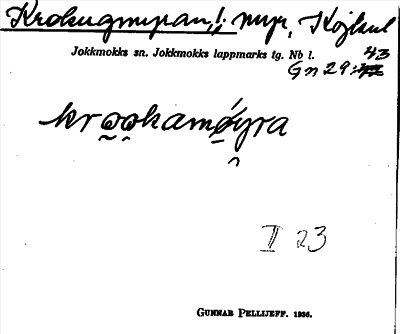 Krokugmyran, l. myr, Kojkul
Jokkmokks sn. Jokkmokks lappmarks tg. Nb l.
43
Gn 29:
krookamøyra
II 23
GUNNAR PELLIJEFF. 1936.